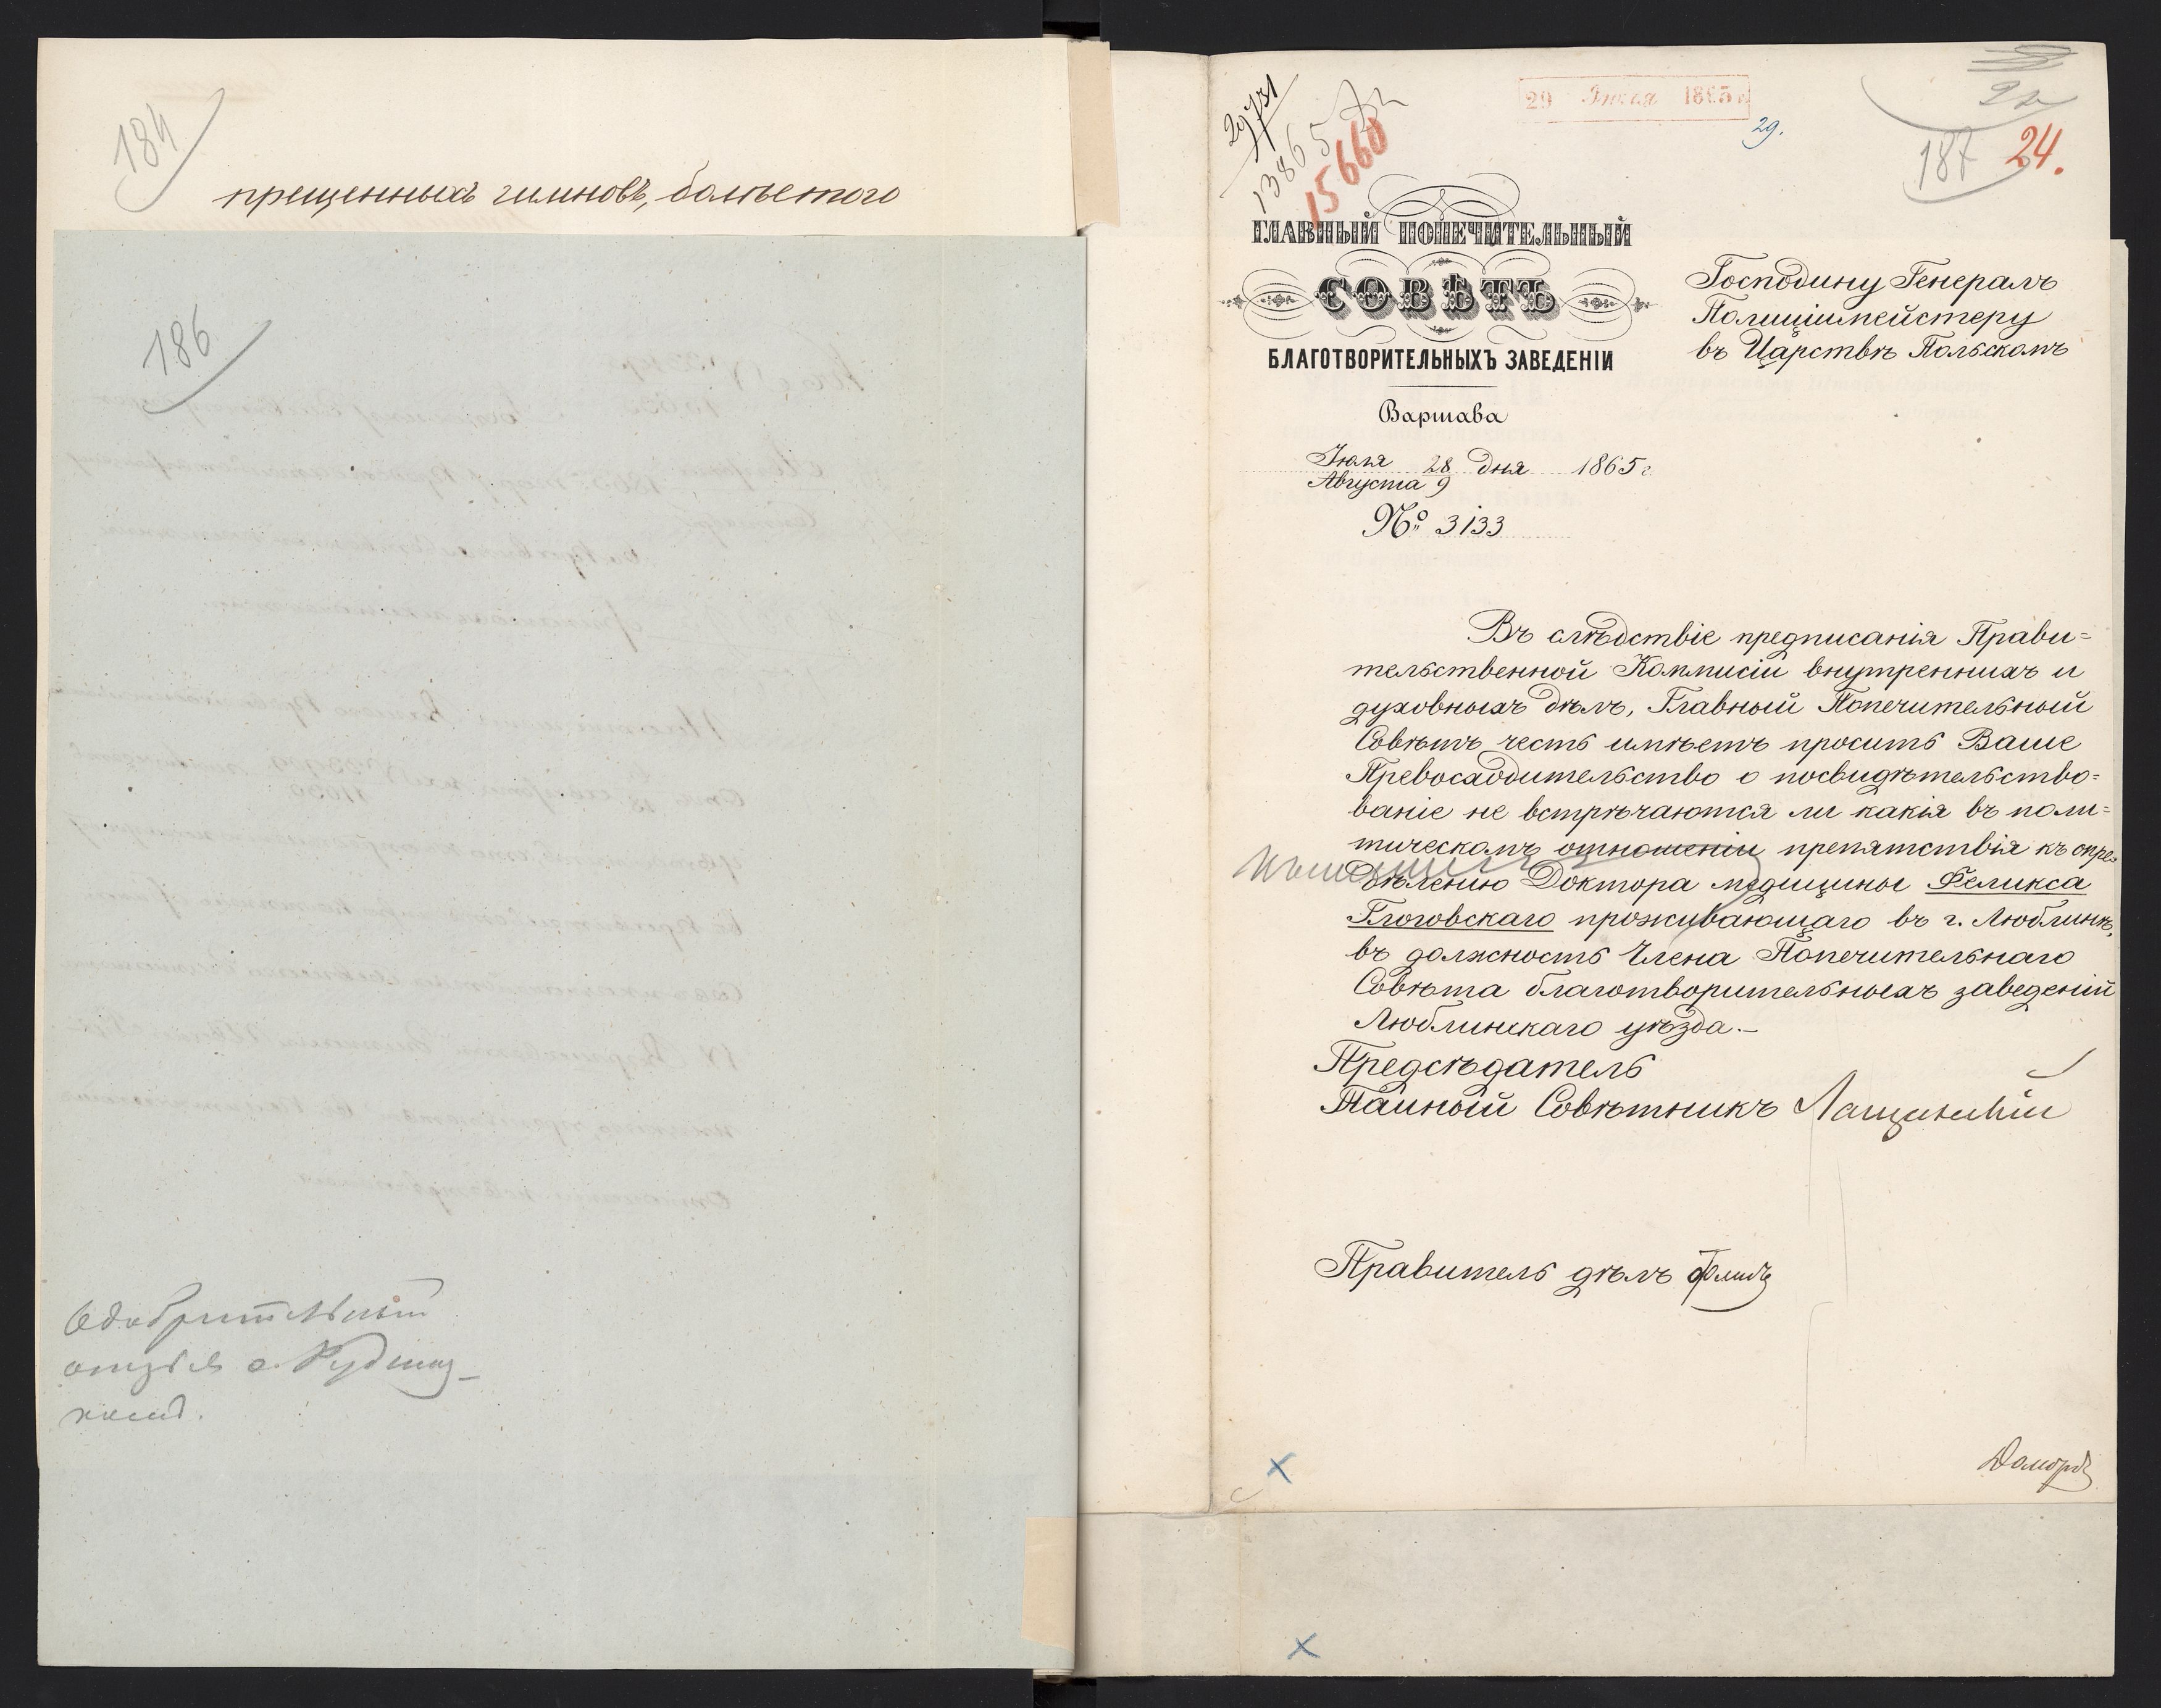 184
прещенныхъ гимновъ, болѣе того
186
Одобрительный
отзывъ о
29 Июля 1865 г
29.
24.
187
13865
15660
ГЛАВНЫЙ ПОПЕЧИТЕЛЬНЫЙ
СОВѢТЪ
БЛАГОТВОРИТЕЛЬНЫХЪ ЗАВЕДЕНІЙ
Варшава
Іюля 28 дня 1865 г.
Августа 9
№ 3133
Господину Генералъ
Полиціймейстеру
въ Царствѣ Польскомъ
Въ слѣдствіе предписанія Прави=
тельственной Коммисіи внутреннихъ и
духовныхъ дѣлъ, Главный Попечительный
Совѣтъ честь имѣетъ просить Ваше
Превосходительство о посвидѣтельство=
ваніе не встрѣчаются ли какія въ поли=
тическомъ отношеніи препятствія къ опре=
дѣленію Доктора медицины Феликса
Глоговскаго проживающаго въ г. Люблинѣ,
въ должность Члена Попечительнаго
Совѣта благотворительныхъ заведеній
Люблинскаго уѣзда.—
Предсѣдатель
Тайный Совѣтникъ
Правитель дѣлъ